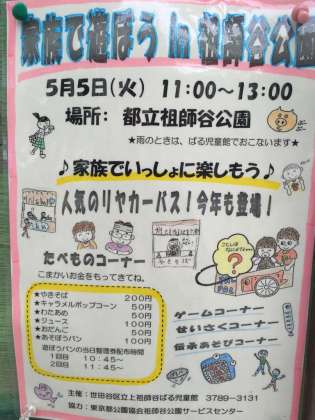 家族で遊ぼう in 祖師谷公園
5月5日(火) 11:00〜13:00
場所: 都立祖師谷公園
★雨のときは、ぱる児童館でおこないます★
♪家族でいっしょに楽しもう♪
人気のリヤカーバス!今年も登場!
たべものコーナー
こまかいお金をもってきてね。
やきそば
★やきそば 200円
★キャラメルポップコーン 50円
★わたあめ 50円
★ジュース 100円
★おだんご 50円
★あそぼうパン 50円
遊ぼうパンの当日整理券配布時間
1回目 10:45〜
2回目 11:45〜
?
ゲームコーナー
せいさくコーナー
伝承あそびコーナー
主催:世田谷区立上祖師谷ぱる児童館 3789-3131
協力:東京都公園協会祖師谷公園サービスセンター